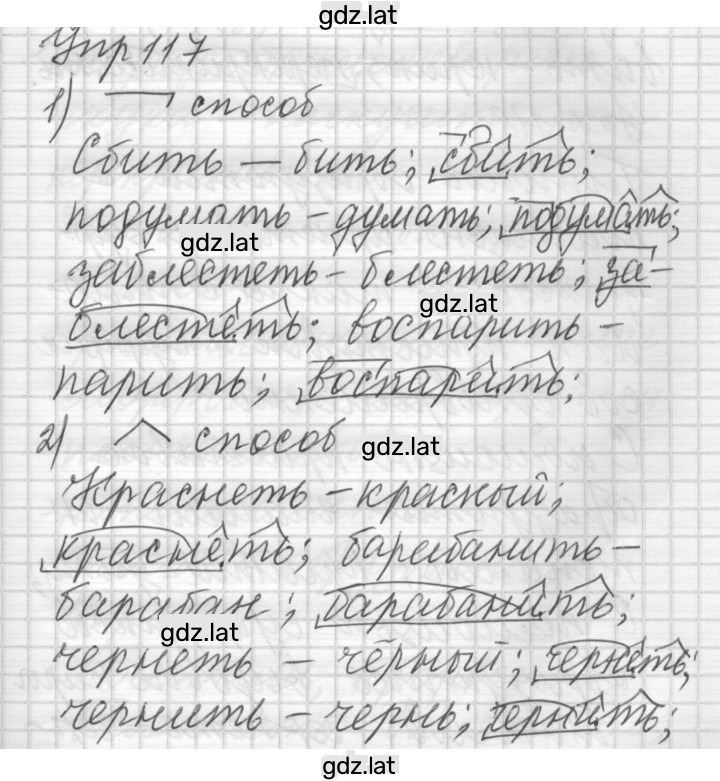 gdz.lat
Упр 117
1) ¬ способ
Сбить – бить; сбить;
подумать – думать; подумать;
gdz.lat
заблестеть – блестеть; за-
gdz.lat
блестеть; воспарить –
парить; воспарить;
2) ^ способ
gdz.lat
Краснеть – красный;
краснеть; барабанить –
барабан; барабанить;
gdz.lat
чернеть – чёрный; чернеть;
чернить – чернь; чернить;
gdz.lat